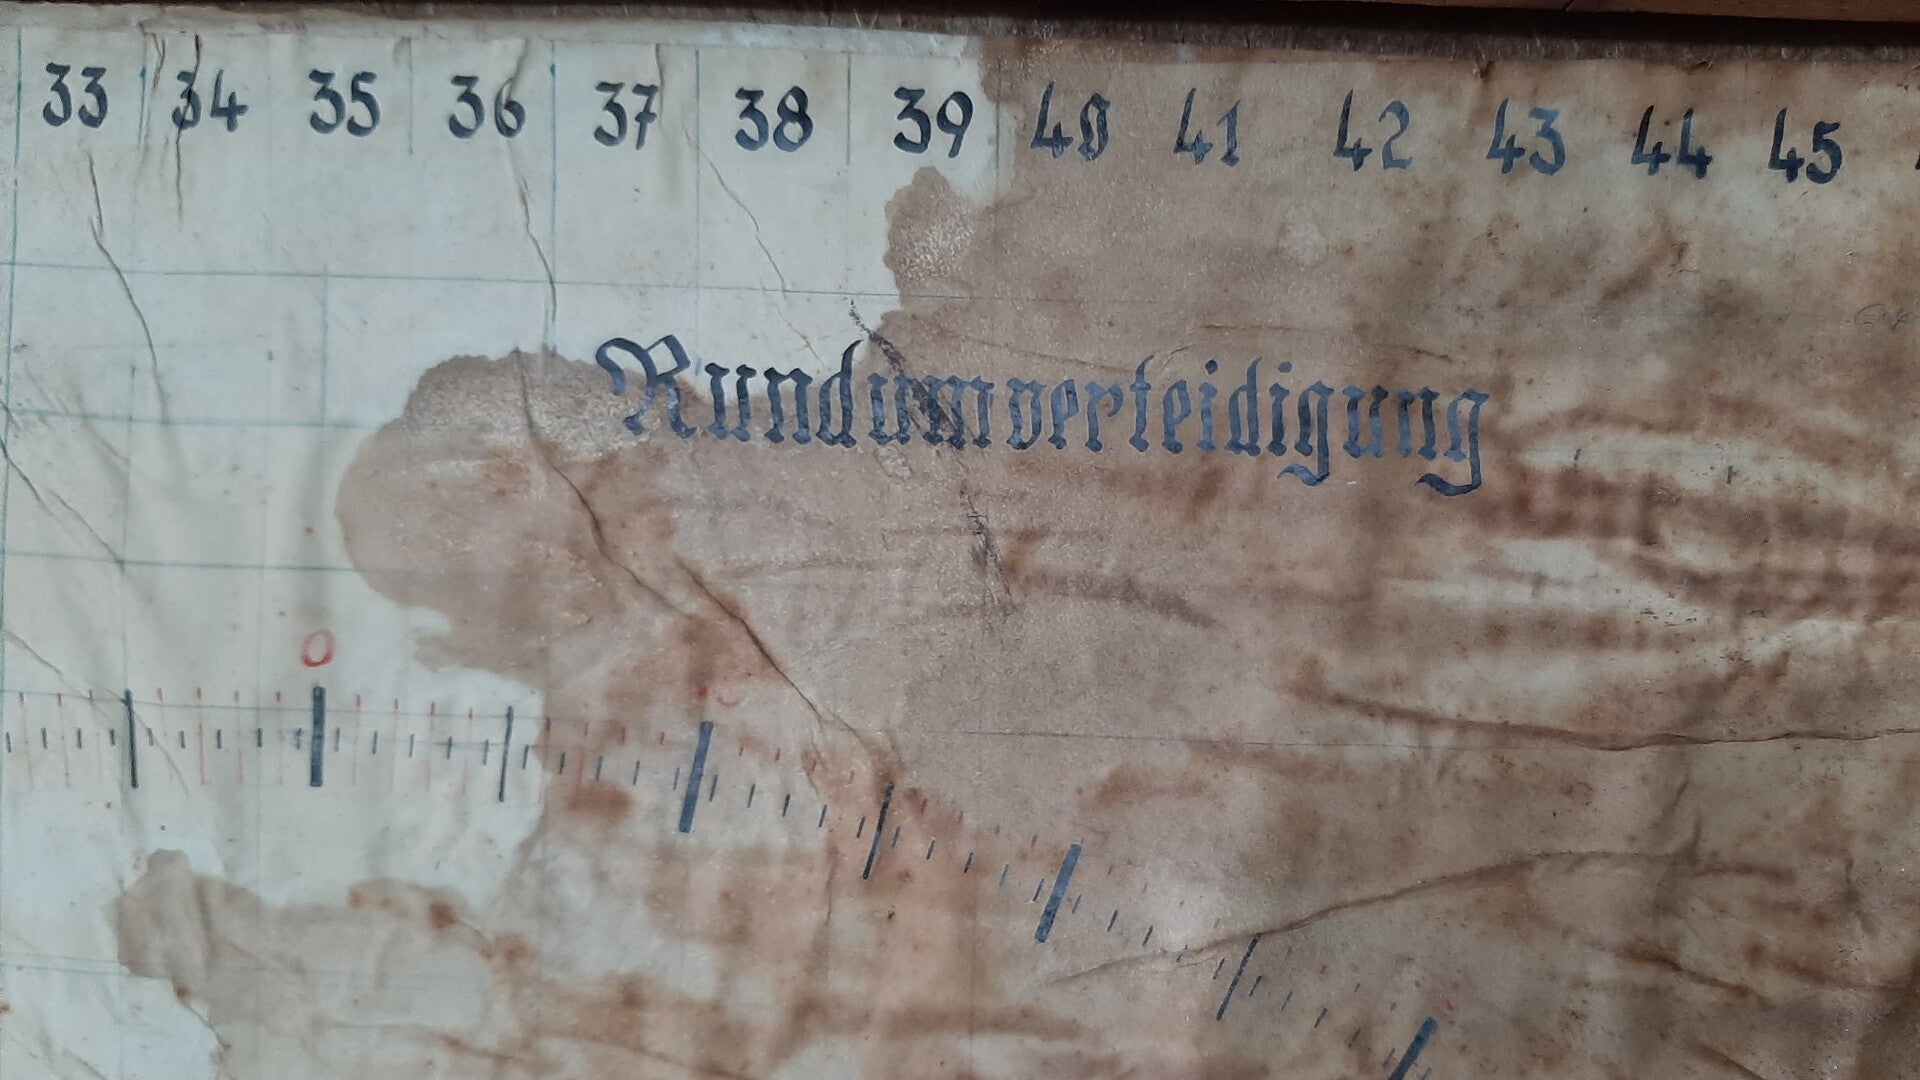 33 34 35 36 37 38 39 40 41 42 43 44 45
Rundumverteidigung
0